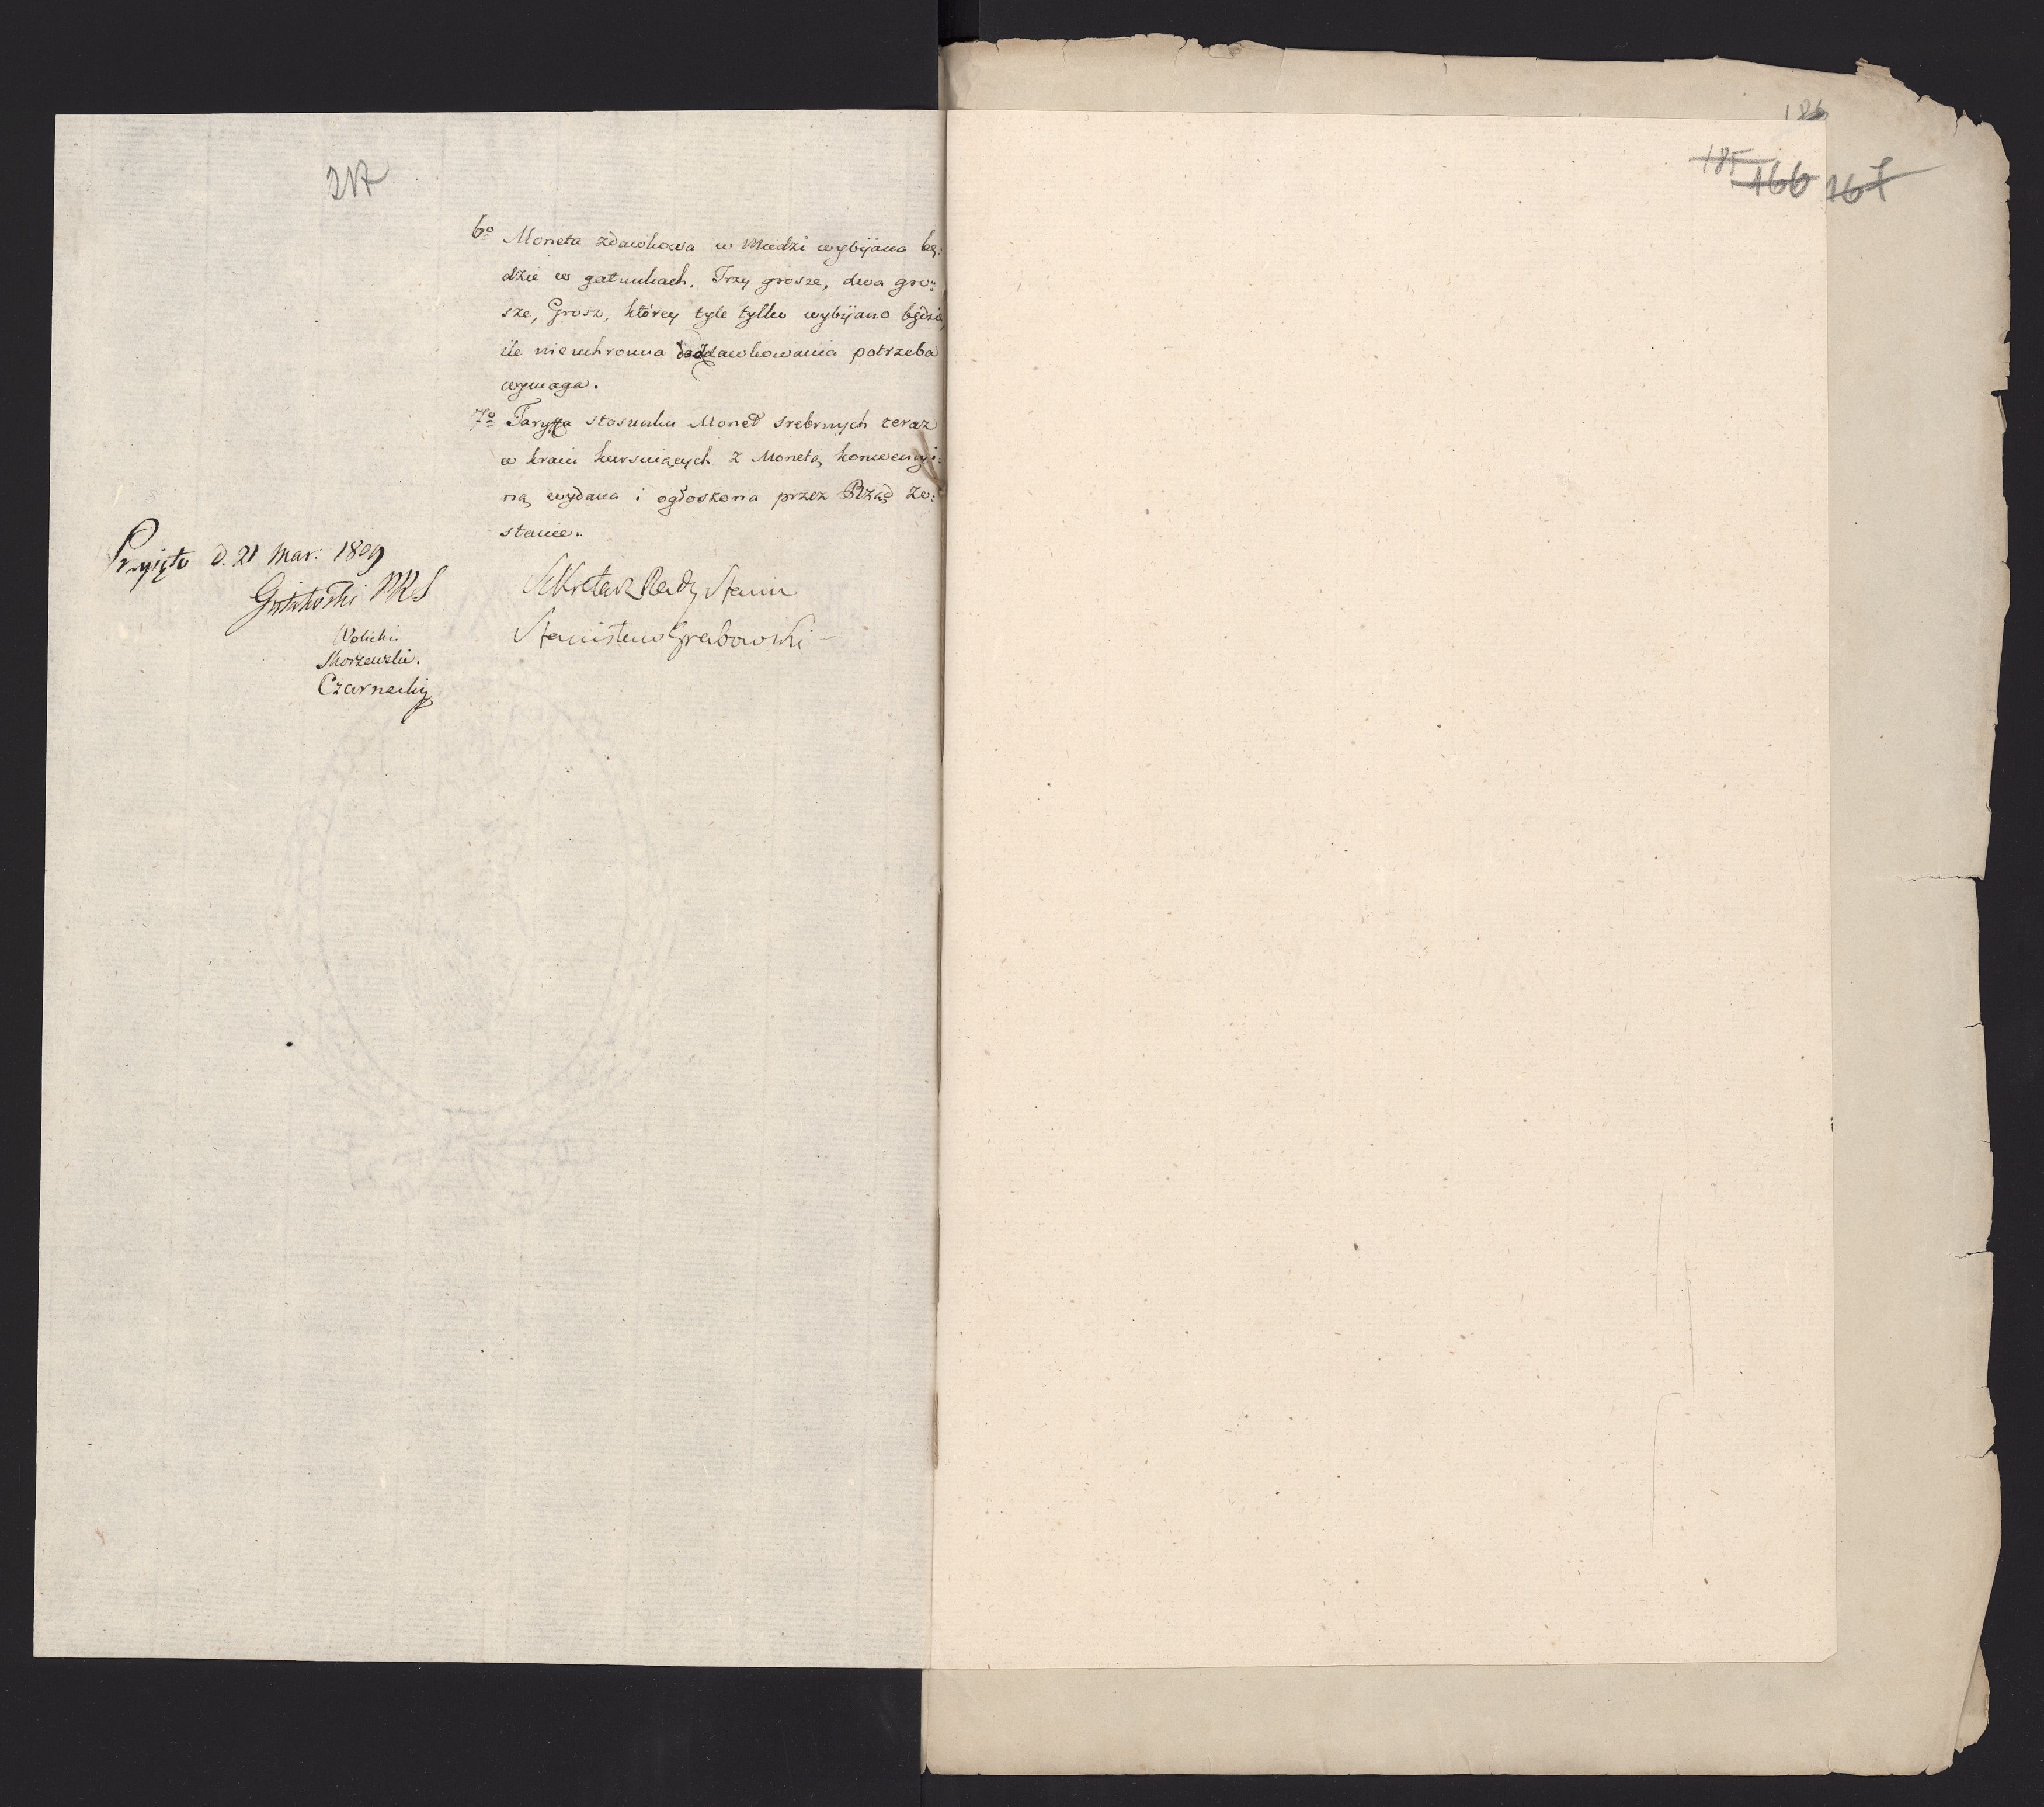 217
6º Moneta zdawkowa w Miedzi wybijana bę:
dzie w gatunkach. Trzy grosze, dwa gro:
sze, Grosz, którey tyle tylko wybijano będzie,
ile nieuchronna do zdawkowania potrzeba
wymaga.
7º Taryffa stosunku Monet srebrnych teraz
w kraiu kursuiących z Monetą konwencyi:
ną wydana i ogłoszona przez Rząd zo:
stanie.
Sekretarz Rady Stanu
Stanisław Grabowski
Przyięto d. 21 Mar: 1809
Gutakowski PRS
Wolicki
Morzewski.
Czarnecki
186
185 166 167